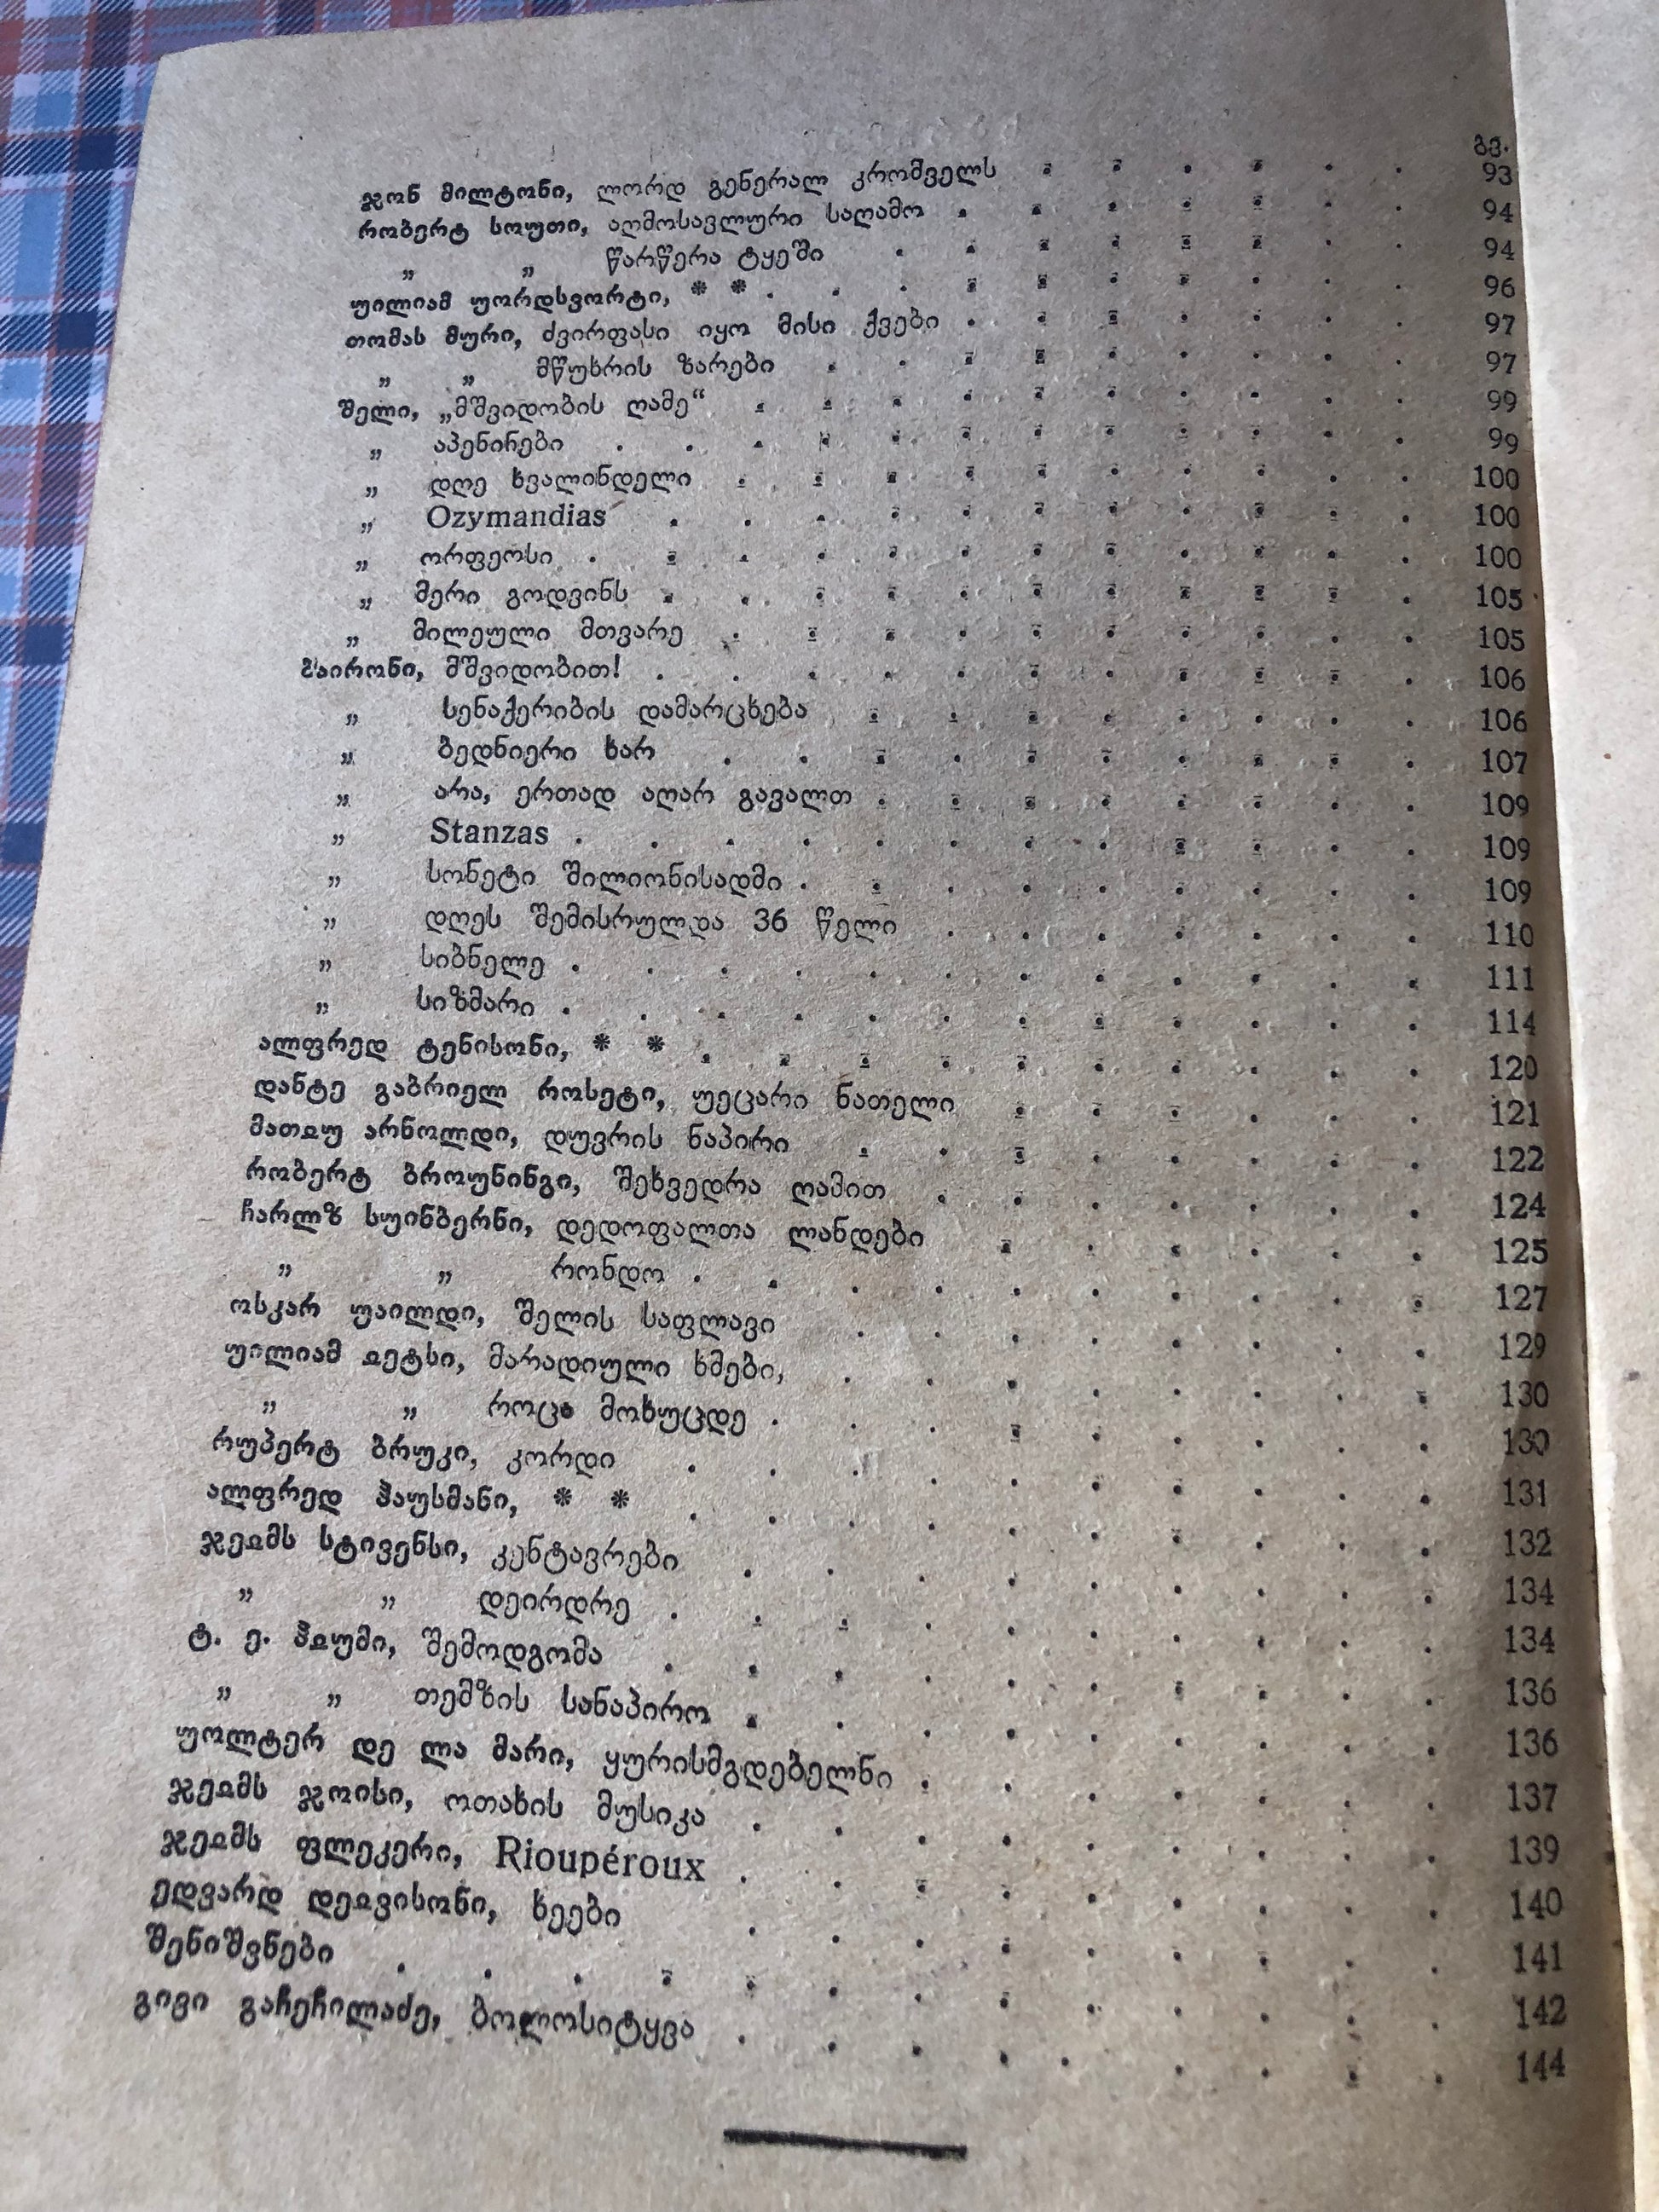 გვ.
ჯონ მილტონი, ლორდ გენერალ კრომველს . . . . . . 93
რობერტ სოუთი, აღმოსავლური საღამო . . . . . . . 94
„ „ წარწერა ტყეში . . . . . . . . 94
უილიამ უორდსვორტი, * * . . . . . . . . . . 96
თომას მური, ძვირფასი იყო მისი ქვები . . . . . . . 97
„ „ მწუხრის ზარები . . . . . . . . . 97
შელი, „მშვიდობის ღამე“ . . . . . . . . . . 99
„ აპენინები . . . . . . . . . . . . 99
„ დღე ხვალინდელი . . . . . . . . . . 100
„ Ozymandias . . . . . . . . . . . 100
„ ორფეოსი . . . . . . . . . . . . 100
„ მერი გოდვინს . . . . . . . . . . . 105
„ მილეული მთვარე . . . . . . . . . . 105
ბაირონი, მშვიდობით! . . . . . . . . . . . 106
„ სენაქერიბის დამარცხება . . . . . . . . 106
„ ბედნიერი ხარ . . . . . . . . . . 107
„ არა, ერთად აღარ გავალთ . . . . . . . . 109
„ Stanzas . . . . . . . . . . . . 109
„ სონეტი შილიონისადმი . . . . . . . . . 109
„ დღეს შემისრულდა 36 წელი . . . . . . . 110
„ სიბნელე . . . . . . . . . . . . 111
„ სიზმარი . . . . . . . . . . . . 114
ალფრედ ტენისონი, * * . . . . . . . . . . 120
დანტე გაბრიელ როსეტი, უეცარი ნათელი . . . . . . 121
მათჲუ არნოლდი, დუვრის ნაპირი . . . . . . . . 122
რობერტ ბროუნინგი, შეხვედრა ღამით . . . . . . . 124
ჩარლზ სუინბერნი, დედოფალთა ლანდები . . . . . . 125
„ „ რონდო . . . . . . . . . . 127
ოსკარ უაილდი, შელის საფლავი . . . . . . . . 129
უილიამ ჲეტსი, მარადიული ხმები, . . . . . . . . 130
„ „ როცა მოხუცდე . . . . . . . . . 130
რუპერტ ბრუკი, კორდი . . . . . . . . . . 131
ალფრედ ჰაუსმანი, * * . . . . . . . . . . 132
ჯეჲმს სტივენსი, კენტავრები . . . . . . . . . 134
„ „ დეირდრე . . . . . . . . . . 134
ტ. ე. ჰჲუმი, შემოდგომა . . . . . . . . . . 136
„ „ თემზის სანაპირო . . . . . . . . . 136
უოლტერ დე ლა მარი, ყურისმგდებელნი . . . . . . . 137
ჯეჲმს ჯოისი, ოთახის მუსიკა . . . . . . . . . 139
ჯეჲმს ფლეკერი, Rioupéroux . . . . . . . . . 140
ედვარდ დეჲვისონი, ხეები . . . . . . . . . 141
შენიშვნები . . . . . . . . . . . . . 142
გივი გაჩეჩილაძე, ბოლოსიტყვა . . . . . . . . . 144